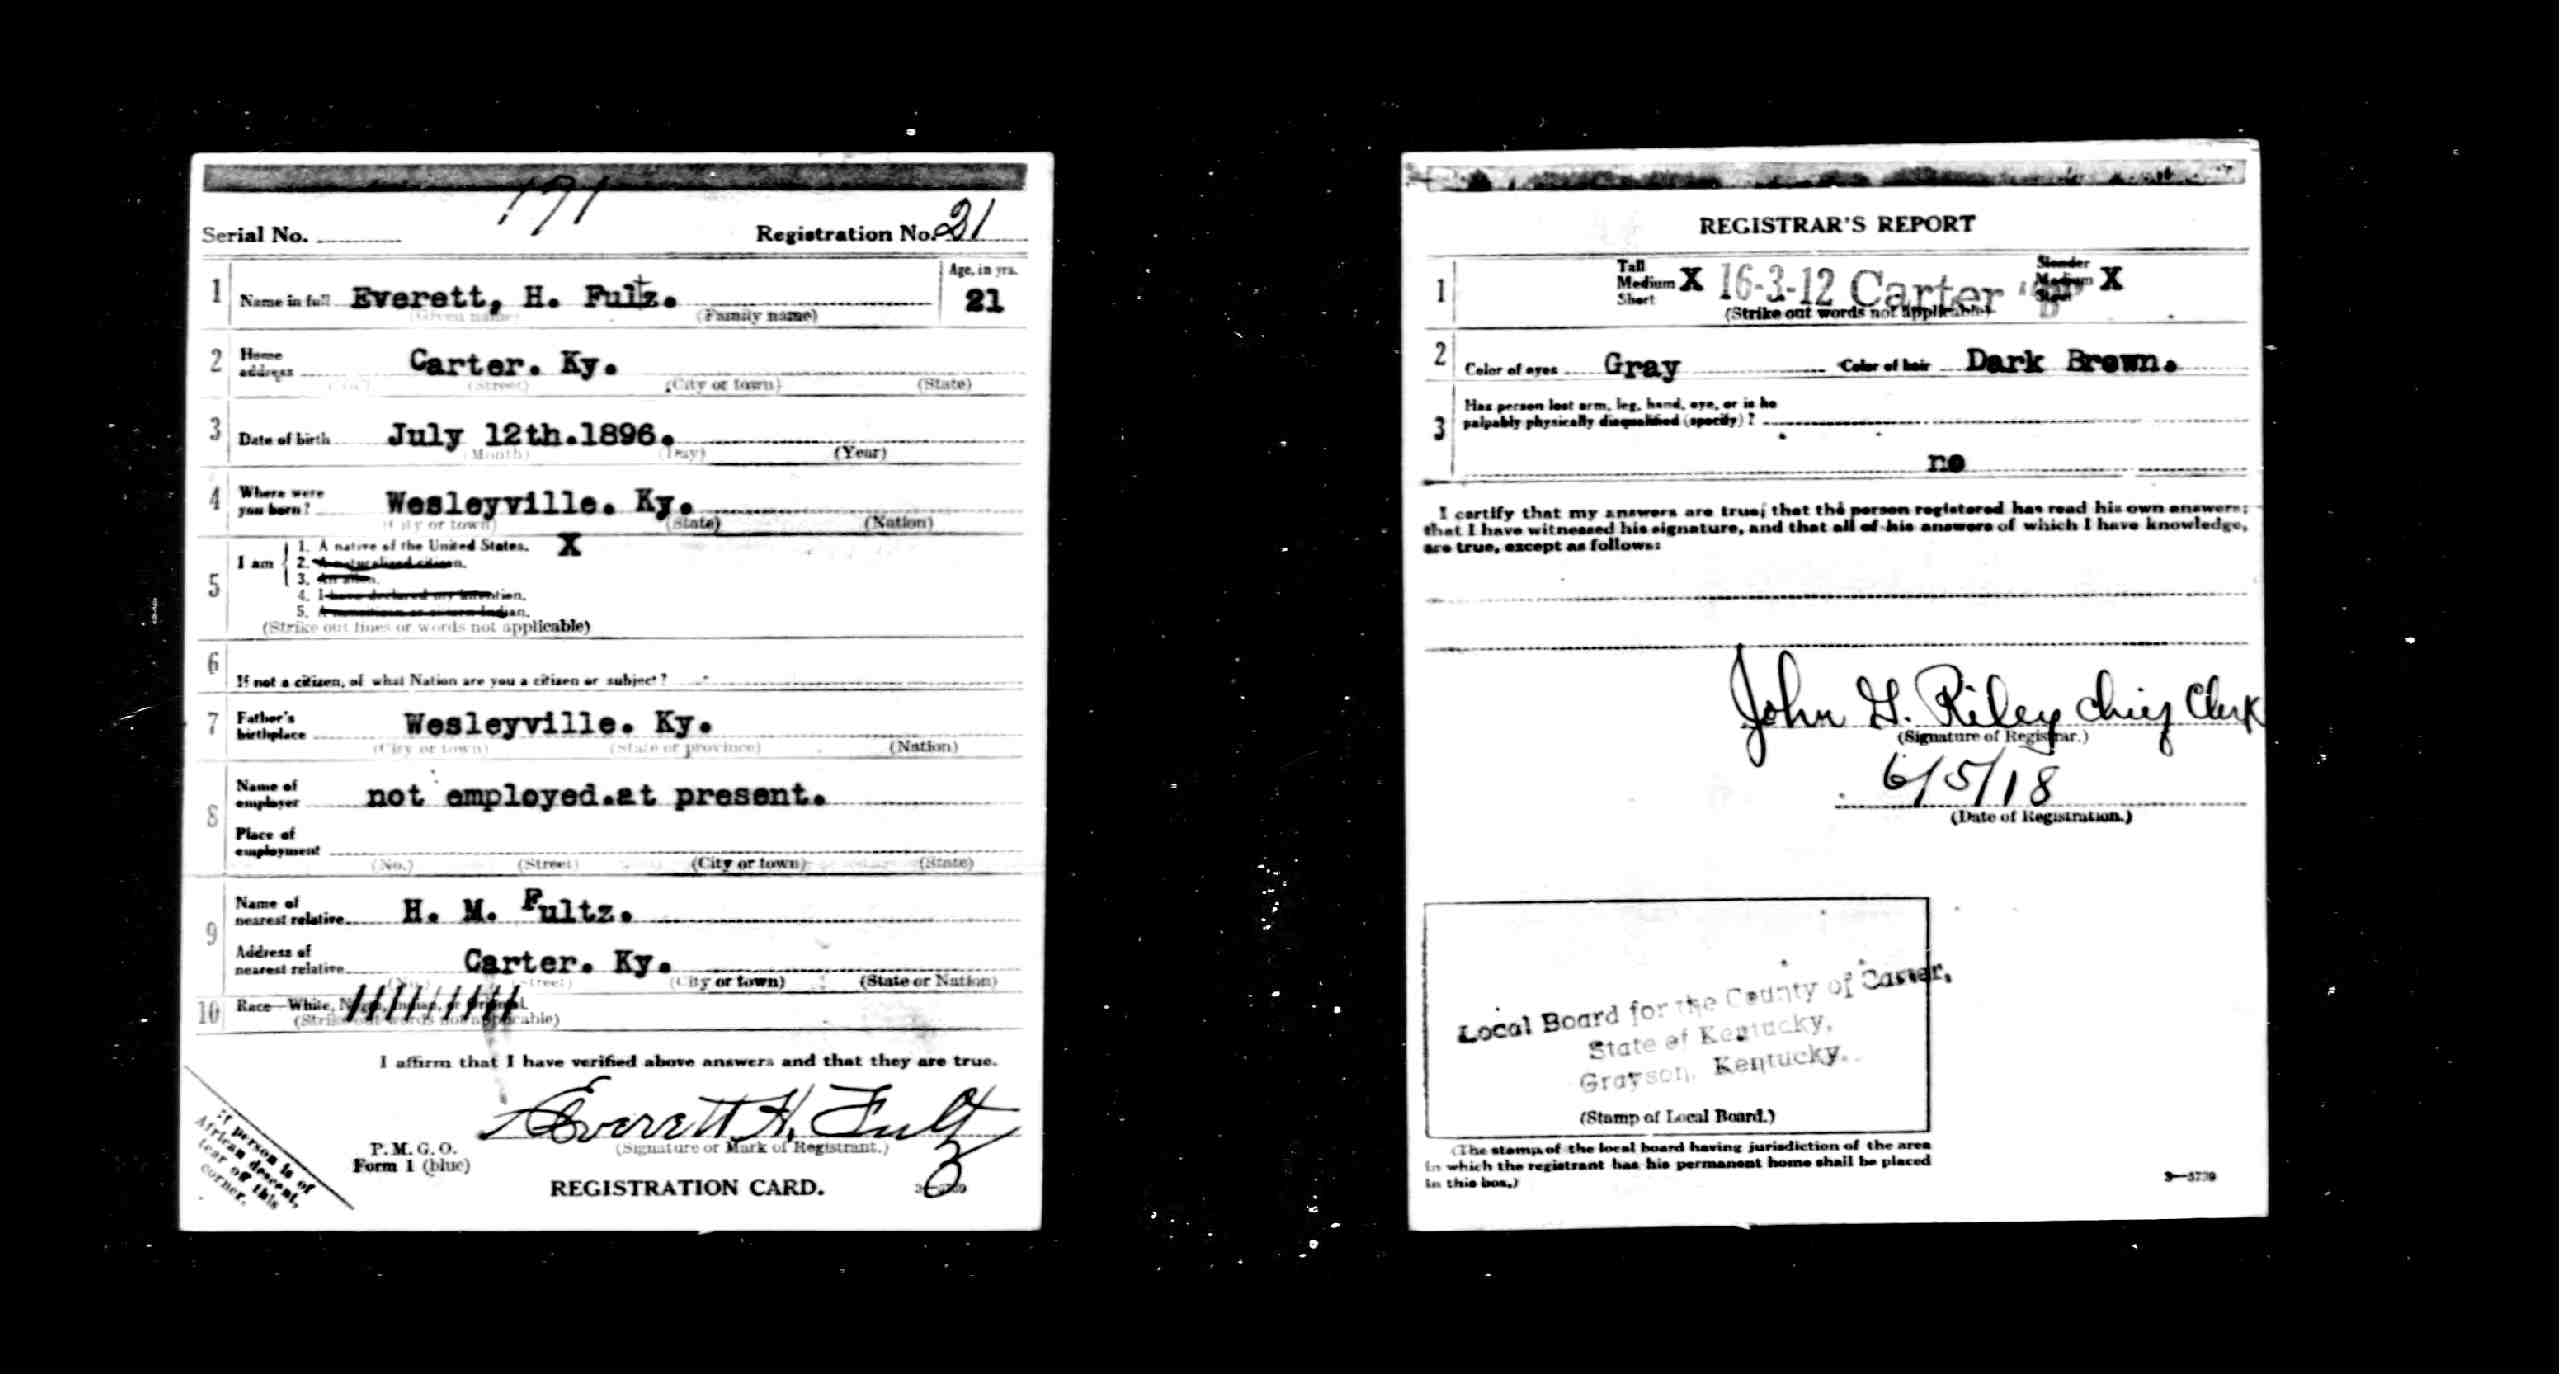 171
Serial No. Registration No. 21
1 Name in full Everett, H. Fultz. Age, in yrs.
(Given name) (Family name) 21
2 Home address Carter. Ky.
(No.) (Street) (City or town) (State)
3 Date of birth July 12th.1896.
(Month) (Day) (Year)
4 Where were you born? Wesleyville. Ky.
(City or town) (State) (Nation)
5 I am
1. A native of the United States. X
2. A naturalized citizen.
3. An alien.
4. I have declared my intention.
5. A noncitizen or citizen Indian.
(Strike out lines or words not applicable)
6 If not a citizen, of what Nation are you a citizen or subject?
7 Father's birthplace Wesleyville. Ky.
(City or town) (State or province) (Nation)
8 Name of employer not employed.at present.
Place of employment
(No.) (Street) (City or town) (State)
9 Name of nearest relative H. M. Fultz.
Address of nearest relative Carter. Ky.
(No.) (Street) (City or town) (State or Nation)
10 Race—White, Negro, Indian, or Oriental.
(Strike out words not applicable)
I affirm that I have verified above answers and that they are true.
Everett H. Fultz
(Signature or Mark of Registrant.)
P. M. G. O.
Form 1 (blue)
REGISTRATION CARD.
If person is of
African descent,
tear off this
corner.
REGISTRAR'S REPORT
1 Tall Slender
Medium X 16-3-12 Carter "B" Medium X
Short Stout
(Strike out words not applicable)
2 Color of eyes Gray Color of hair Dark Brown.
3 Has person lost arm, leg, hand, eye, or is he
palpably physically disqualified (specify)?
no
I certify that my answers are true; that the person registered has read his own answers;
that I have witnessed his signature, and that all of his answers of which I have knowledge,
are true, except as follows:
John G. Riley Chief Clerk
(Signature of Registrar.)
6/5/18
(Date of Registration.)
Local Board for the County of Carter,
State of Kentucky,
Grayson, Kentucky.
(Stamp of Local Board.)
(The stamp of the local board having jurisdiction of the area
in which the registrant has his permanent home shall be placed
in this box.)
3—5739